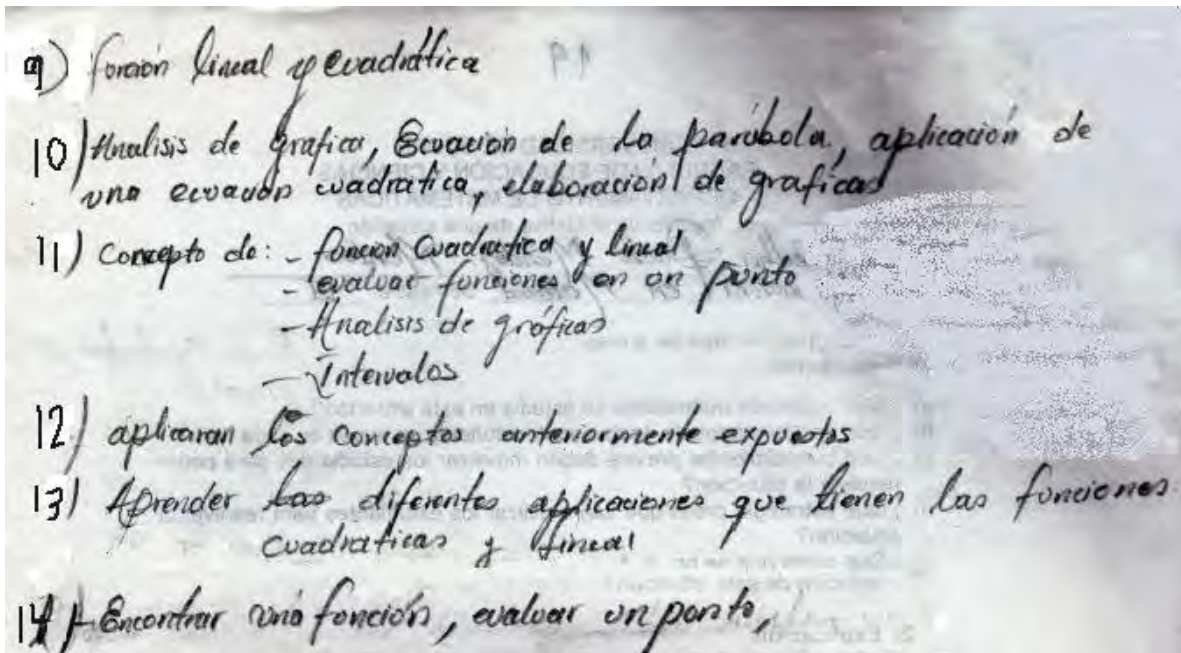 9) función lineal y cuadrática
10) Analisis de grafica, Ecuación de la parábola, aplicación de
una ecuación cuadratica, elaboración de graficas
11) Concepto de: - función Cuadratica y lineal
- evaluar funciones en un punto
- Analisis de gráficas
- Intervalos
12) aplicaran los conceptos anteriormente expuestos
13) Aprender las diferentes aplicaciones que tienen las funciones
cuadraticas y lineal
14) - Encontrar una función, evaluar un punto,